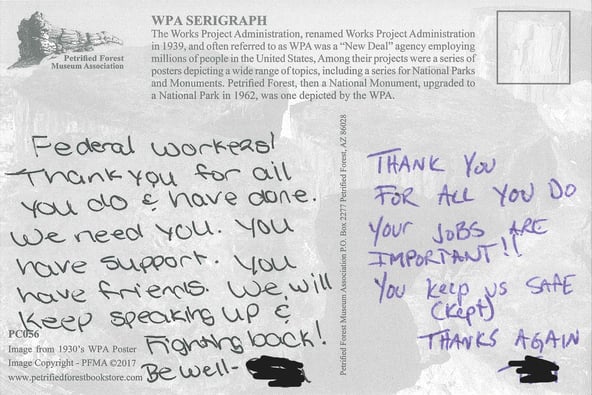 Petrified Forest
Museum Association
WPA SERIGRAPH
The Works Project Administration, renamed Works Project Administration
in 1939, and often referred to as WPA was a “New Deal” agency employing
millions of people in the United States, Among their projects were a series of
posters depicting a wide range of topics, including a series for National Parks
and Monuments. Petrified Forest, then a National Monument, upgraded to
a National Park in 1962, was one depicted by the WPA.
Federal workers!
Thank you for all
you do & have done.
We need you. You
have support. You
have friends. We will
keep speaking up &
Fighting back!
Be well-
PC056
Image from 1930’s WPA Poster
Image Copyright - PFMA ©2017
www.petrifiedforestbookstore.com
Petrified Forest Museum Association P.O. Box 2277 Petrified Forest, AZ 86028
THANK YOU
FOR ALL YOU DO
YOUR JOBS ARE
IMPORTANT!!
YOU KEEP US SAFE
(kept)
THANKS AGAIN